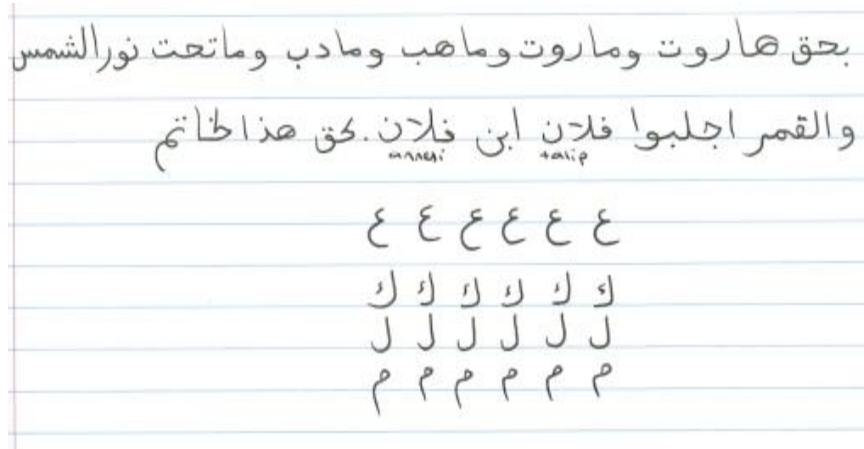 بحق هاروت وماروت وماهب ومادب وماتحت نورالشمس
والقمر اجلبوا فلان ابن فلان. بحق هذا الخاتم
talip annesi
ع ع ع ع ع ع
ك ك ك ك ك ك
ل ل ل ل ل ل
م م م م م م